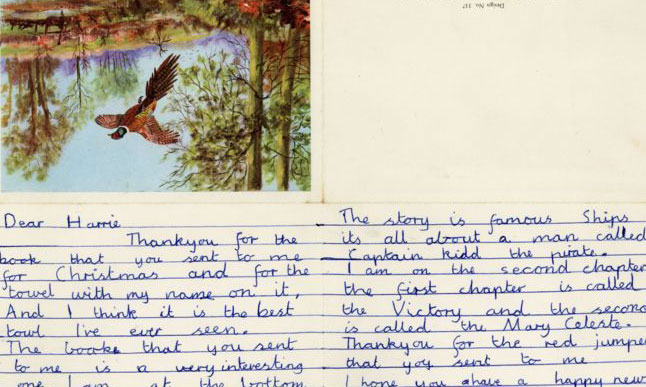 Design No. 117
Dear Harrie
Thankyou for the
book that you sent to me
for Christmas and for the
towel with my name on it,
And I think it is the best
towl I've ever seen.
The book that you sent
to me is a very interesting
one I am at the bottom
The story is famous Ships
its all about a man called
Captain kidd the pirate.
I am on the second chapter
the first chapter is called
the Victory and the second
is called the Mary Celeste.
Thankyou for the red jumper
that you sent to me
I hope you have a happy new